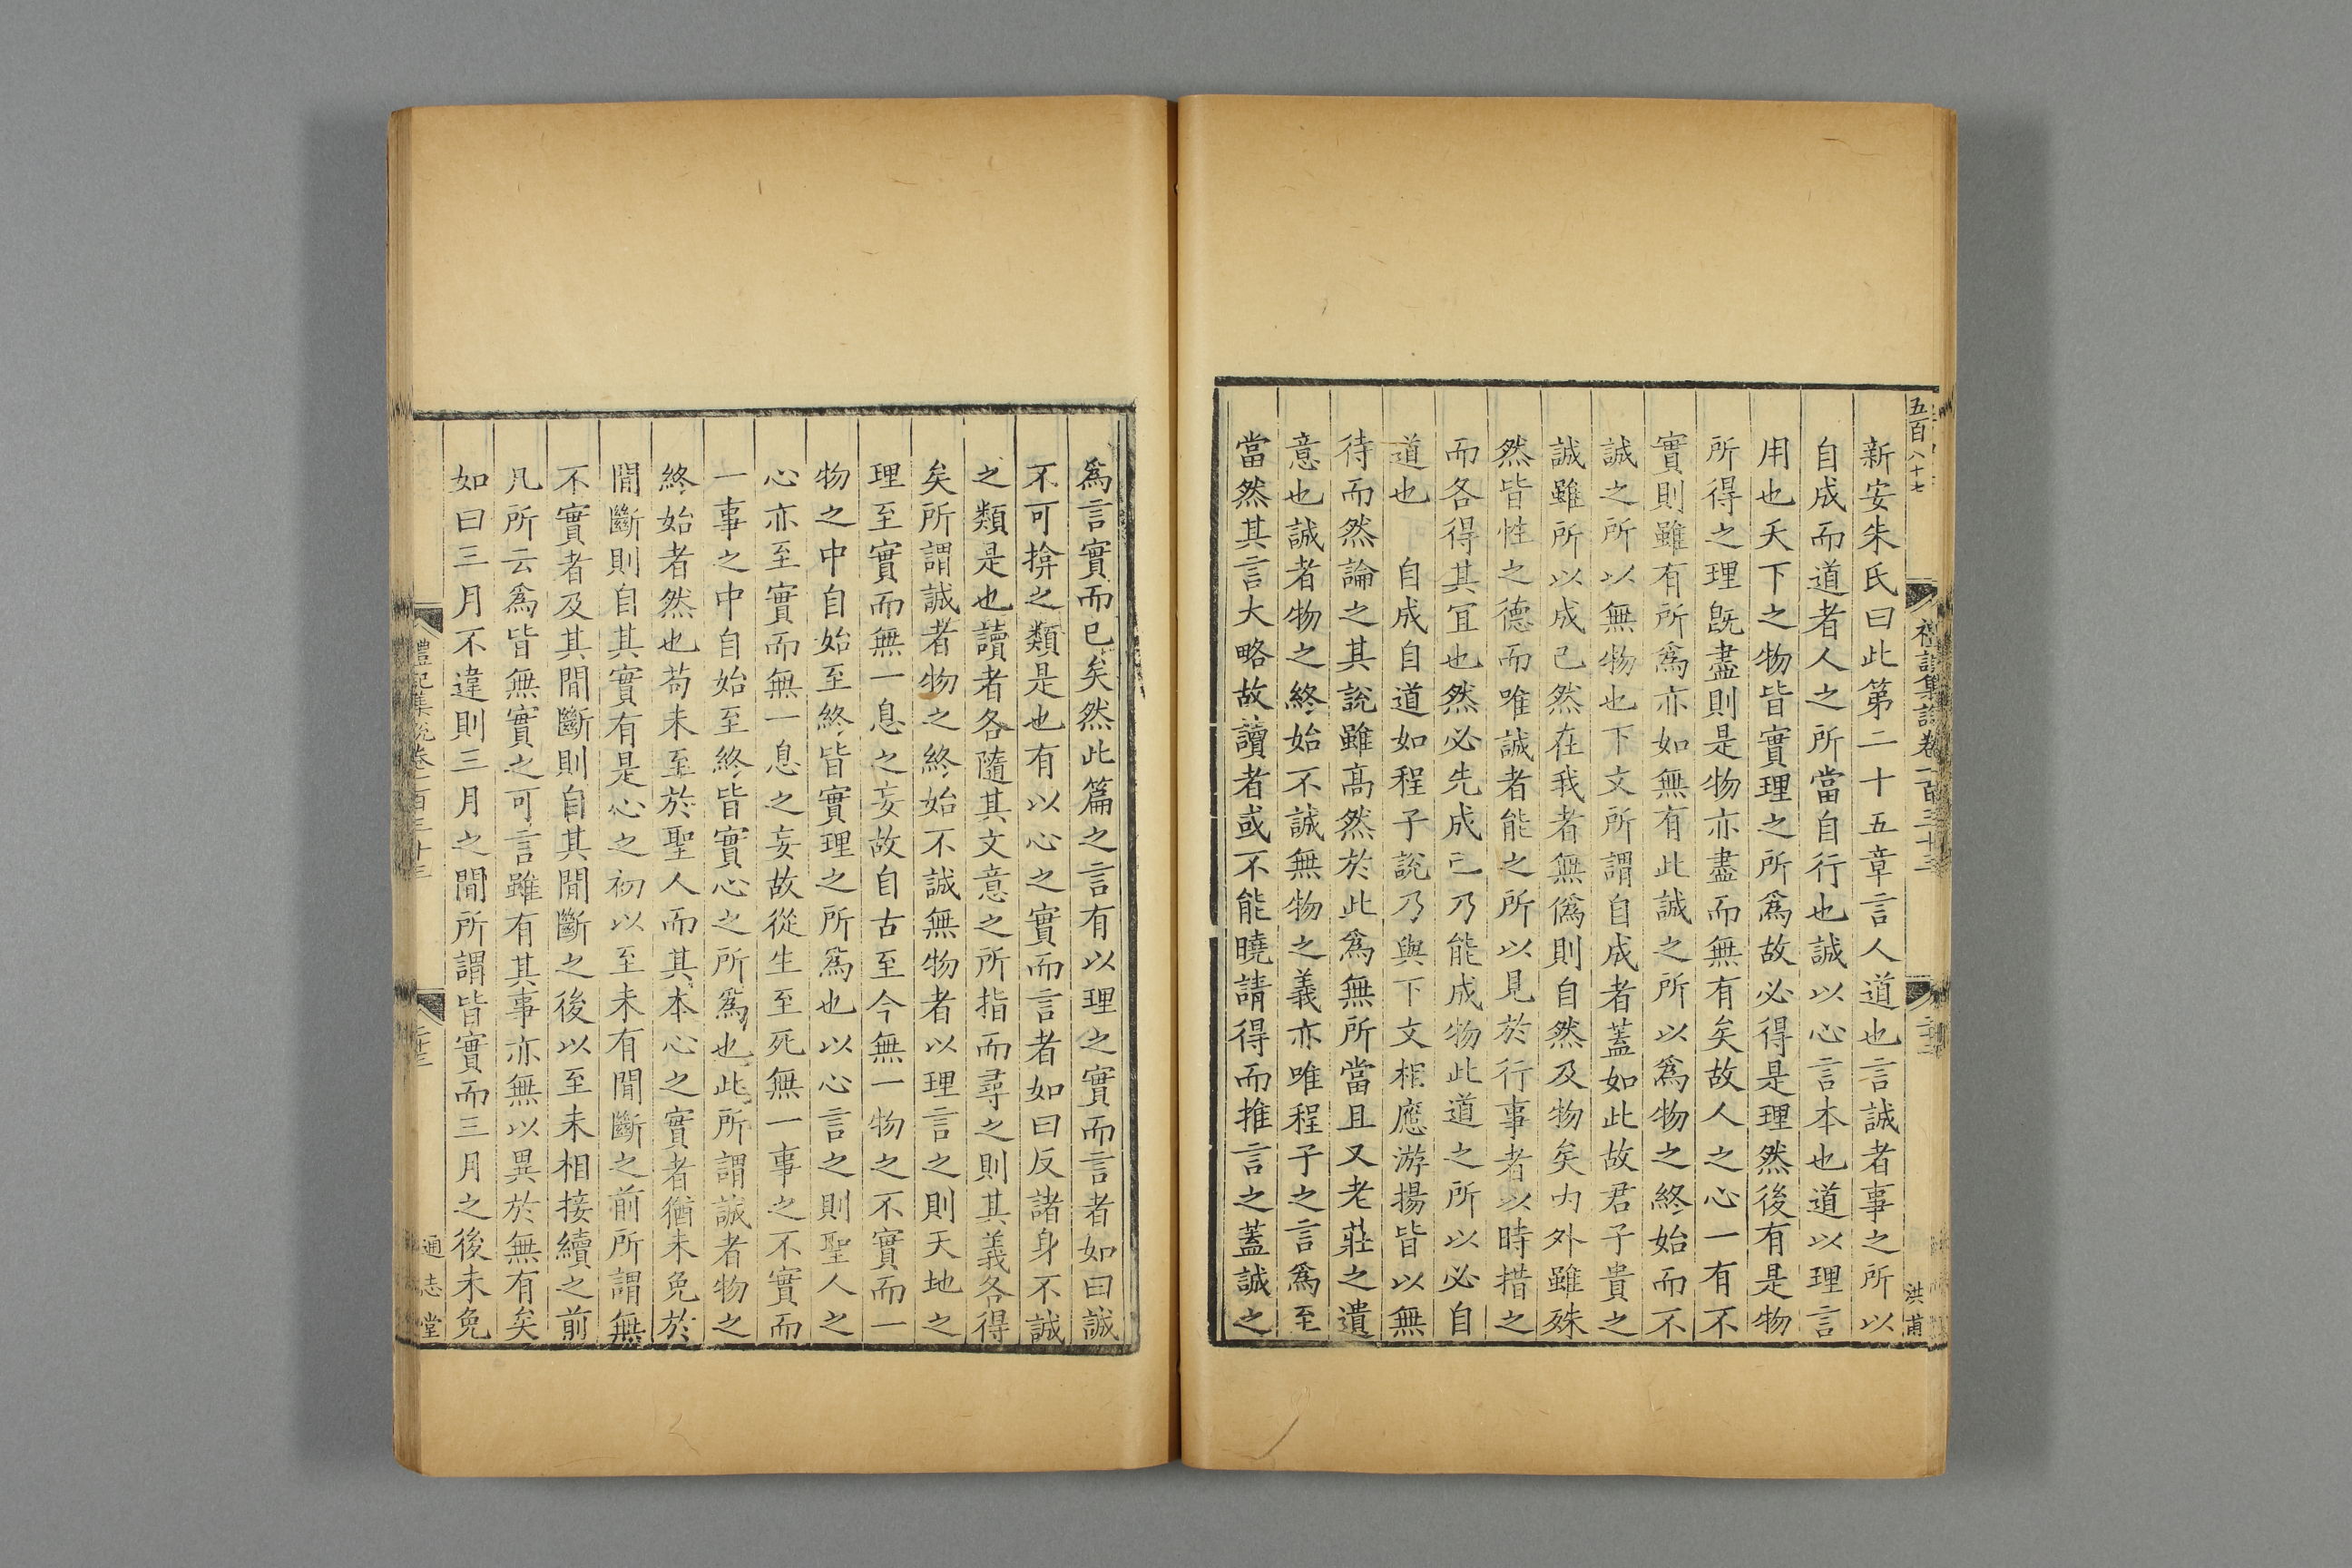 五百八十七
禮記集說卷一百三十三
洪甫
新安朱氏曰此第二十五章言人道也言誠者事之所以
自成而道者人之所當自行也誠以心言本也道以理言
用也天下之物皆實理之所爲故必得是理然後有是物
所得之理旣盡則是物亦盡而無有矣故人之心一有不
實則雖有所爲亦如無有此誠之所以爲物之終始而不
誠之所以無物也下文所謂自成者蓋如此故君子貴之
誠雖所以成己然在我者無僞則自然及物矣內外雖殊
然皆性之德而唯誠者能之所以見於行事者以時措之
而各得其宜也然必先成己乃能成物此道之所以必自
道也 自成自道如程子說乃與下文相應游揚皆以無
待而然論之其說雖高然於此爲無所當且又老莊之遺
意也誠者物之終始不誠無物之義亦唯程子之言爲至
當然其言大略故讀者或不能曉請得而推言之蓋誠之
爲言實而已矣然此篇之言有以理之實而言者如曰誠
不可揜之類是也有以心之實而言者如曰反諸身不誠
之類是也讀者各隨其文意之所指而尋之則其義各得
矣所謂誠者物之終始不誠無物者以理言之則天地之
理至實而無一息之妄故自古至今無一物之不實而一
物之中自始至終皆實理之所爲也以心言之則聖人之
心亦至實而無一息之妄故從生至死無一事之不實而
一事之中自始至終皆實心之所爲也此所謂誠者物之
終始者然也苟未至於聖人而其本心之實者猶未免於
間斷則自其實有是心之初以至未有間斷之前所謂無
不實者及其間斷則自其間斷之後以至未相接續之前
凡所云爲皆無實之可言雖有其事亦無以異於無有矣
如曰三月不違則三月之間所謂皆實而三月之後未免
禮記集說卷一百三十三
通志堂